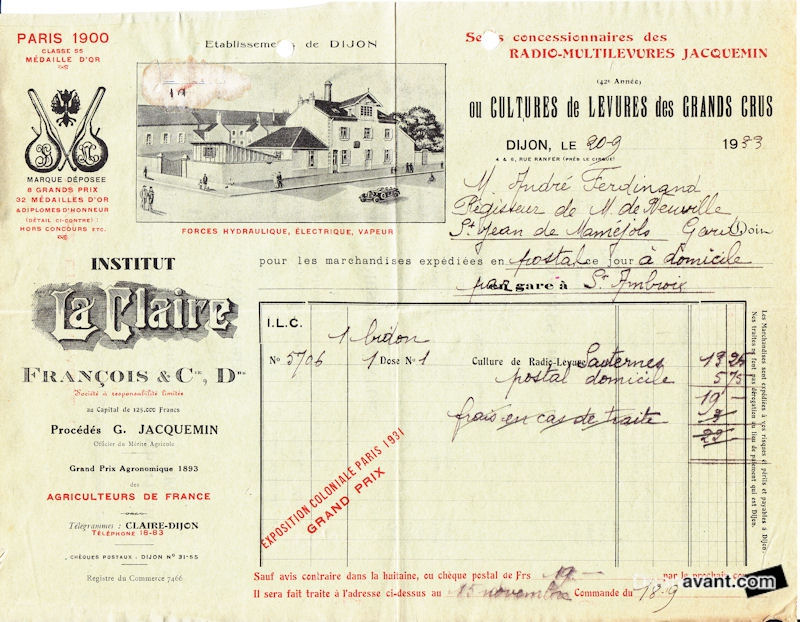 PARIS 1900
CLASSE 55
MÉDAILLE D'OR
MARQUE DÉPOSÉE
8 GRANDS PRIX
32 MÉDAILLES D'OR
& DIPLOMES D'HONNEUR
(DÉTAIL CI-CONTRE)
HORS CONCOURS ETC.
Etablissements de DIJON
FORCES HYDRAULIQUE, ÉLECTRIQUE, VAPEUR
concessionnaires des
RADIO-MULTILEVURES JACQUEMIN
(42e Année)
ou CULTURES de LEVURES des GRANDS CRUS
DIJON, LE 20-9 1933
4 & 6, RUE RANFER (PRÈS LE CIRQUE)
M. André Ferdinand
Régisseur de M. de Neuville
St Jean de Gard Doit
pour les marchandises expédiées en postal ce jour à domicile
gare à St Ambroix
INSTITUT
La Claire
FRANÇOIS & Cie, Drs
Société à responsabilité limitée
au Capital de 125.000 Francs
Procédés G. JACQUEMIN
Officier du Mérite Agricole
Grand Prix Agronomique 1893
des
AGRICULTEURS DE FRANCE
Télégrammes : CLAIRE-DIJON
TÉLÉPHONE 18-83
CHÈQUES POSTAUX - DIJON N° 31-55
Registre du Commerce 7466
I.L.C.
1 bidon
No 5706 1 Dose No 1 Culture de Radio-Levure Sauternes 13 25
postal domicile 5 75
19 -
frais en cas de traite 3
22
EXPOSITION COLONIALE PARIS 1931
GRAND PRIX
Les Marchandises sont expédiées à vos risques et périls et payables à Dijon
Nos traites ne font pas dérogation au lieu de paiement qui est Dijon.
Sauf avis contraire dans la huitaine, ou chèque postal de Frs 19.- par le prochain
Il sera fait traite à l'adresse ci-dessus au 15 novembre Commande du 18-9
avant.com